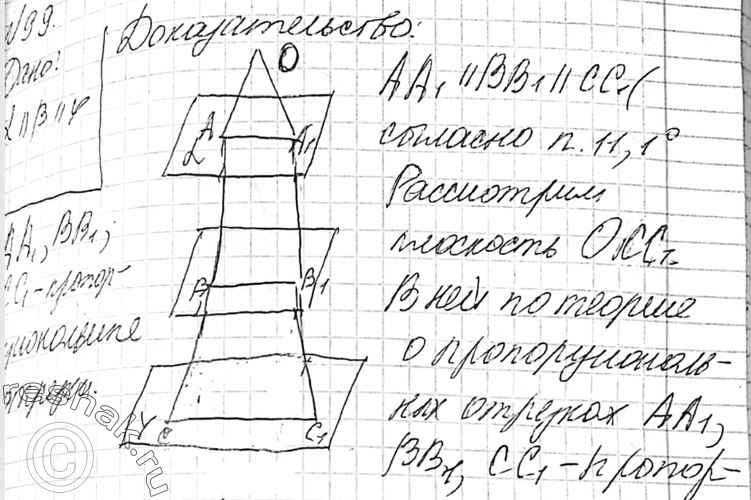 №99.
Дано:
α || β || γ
AA₁, BB₁,
CC₁ - пропор-
циональные
Доказательство:
O
A
A₁
α
B
B₁
γ
C
C₁
AA₁ || BB₁ || CC₁ (
согласно п. 11, 1°
Рассмотрим
плоскость OCC₁.
В ней по теореме
о пропорциональ-
ных отрезках AA₁,
BB₁, CC₁ - пропор-
©reshak.ru